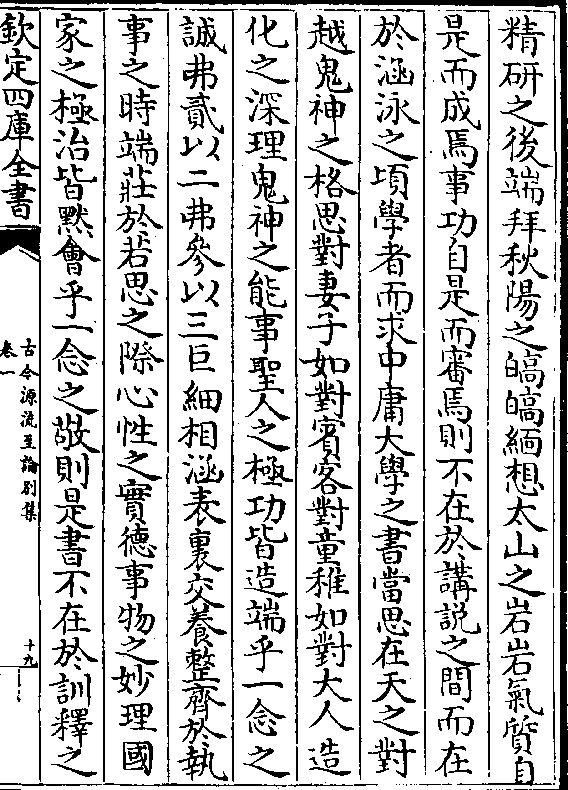 精研之後端拜秋陽之皜皜緬想太山之岩岩氣質自
是而成焉事功自是而審焉則不在於講説之間而在
於涵泳之頃學者而求中庸大學之書當思在天之對
越鬼神之格思對妻子如對賓客對童稚如對大人造
化之深理鬼神之能事聖人之極功皆造端乎一念之
誠弗貳以二弗參以三巨細相涵表裏交養整齊於執
事之時端莊於若思之際心性之實德事物之妙理國
家之極治皆黙會乎一念之敬則是書不在於訓釋之
欽定四庫全書
古今源流至論别集
卷一
十九